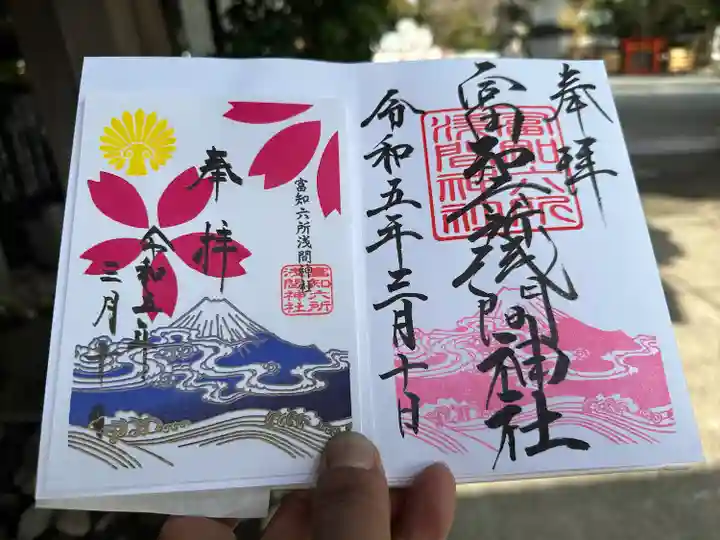 奉拝
富知六所浅間神社
富知六所浅間神社
令和五年三月十日
富知六所浅間神社
富知六所
浅間神社
奉拝
令和五年
三月十